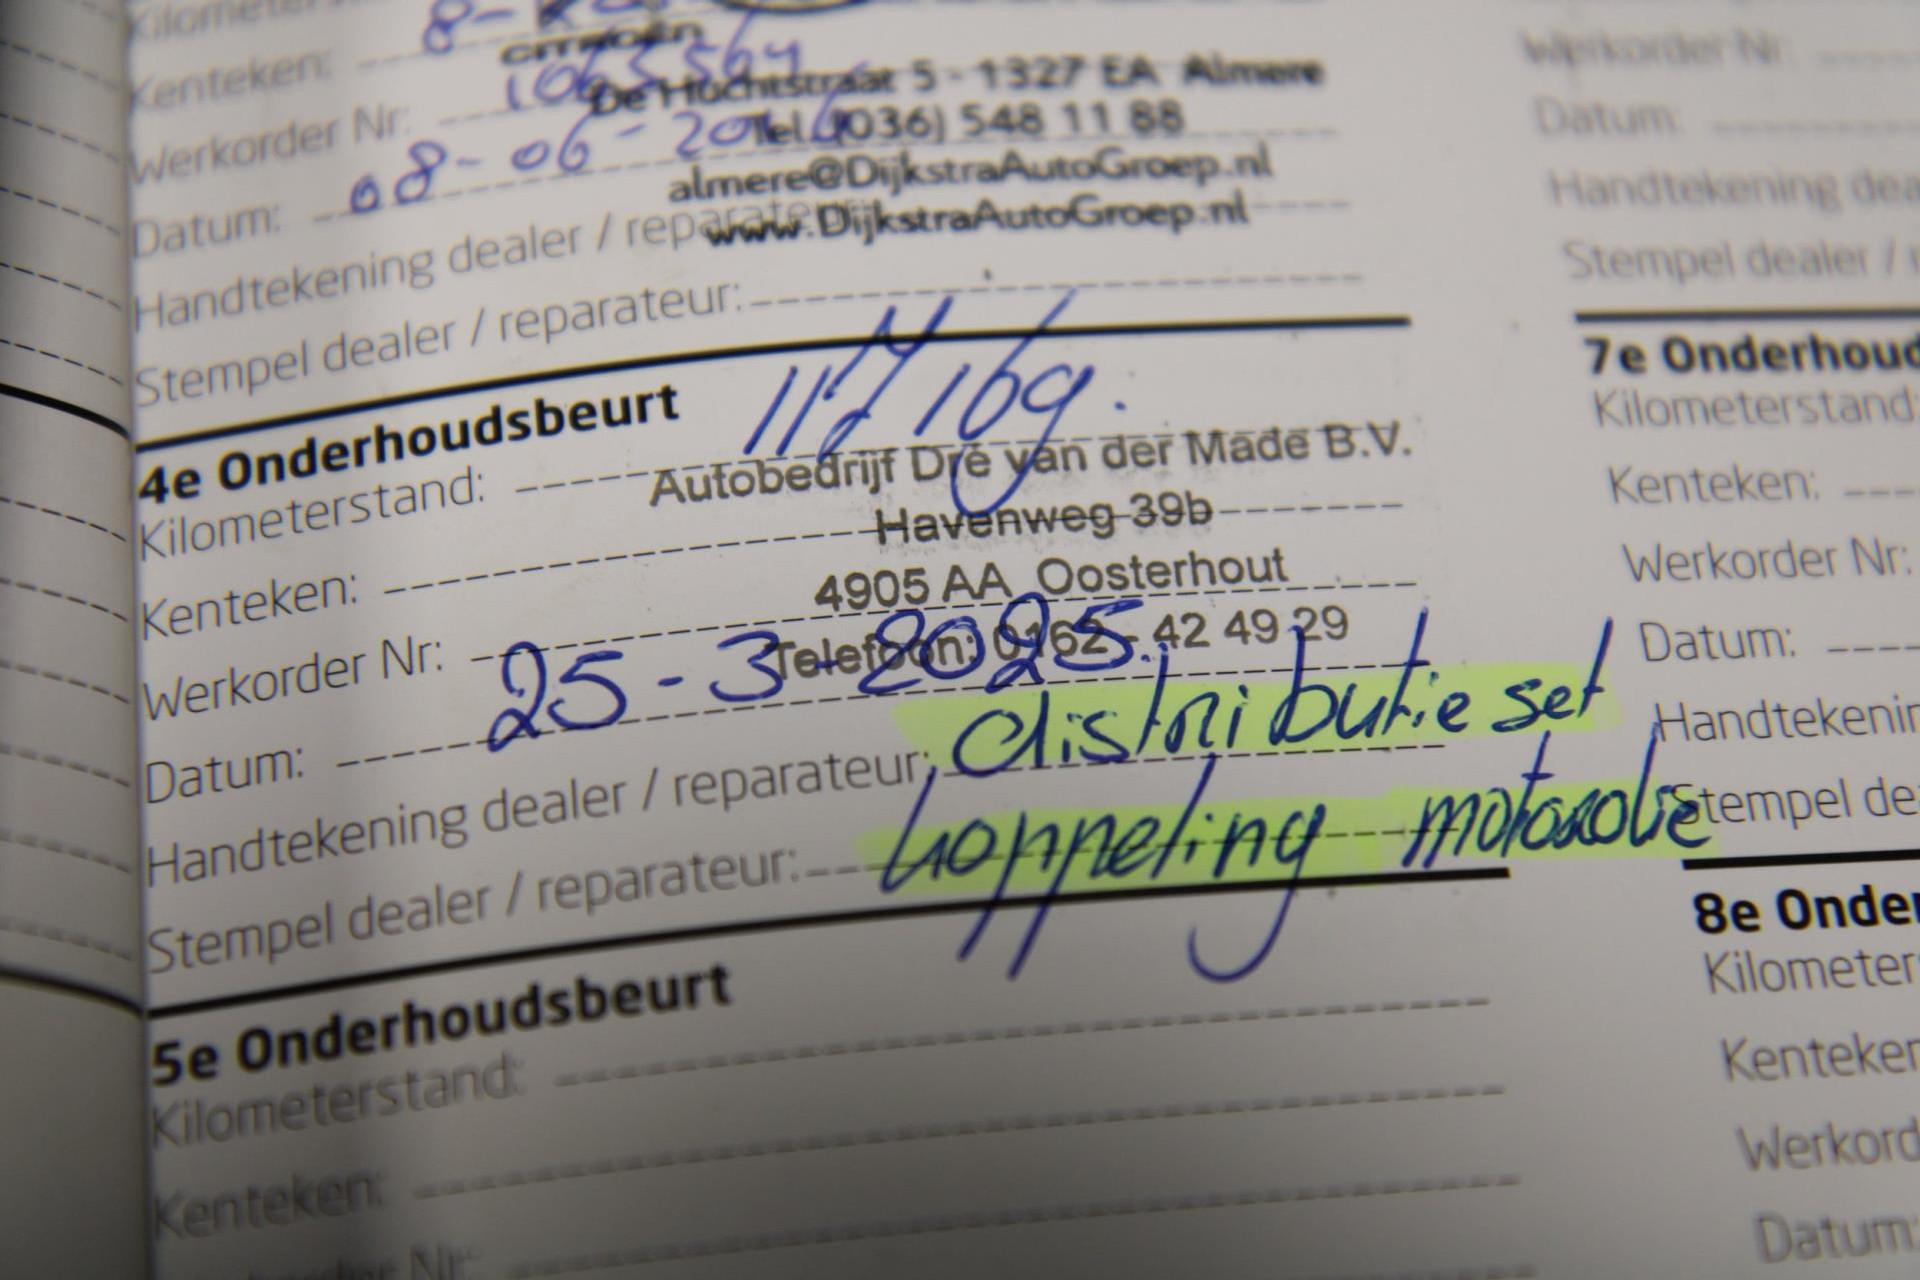 Kilometerst
Kenteken: 8-K
CITROËN
Werkorder Nr: 1063564
De Huchtstraat 5 - 1327 EA Almere
Datum: 08-06-20
Tel. (036) 548 11 88
almere@DijkstraAutoGroep.nl
www.DijkstraAutoGroep.nl
Handtekening dealer / reparateur:
Stempel dealer / reparateur:
4e Onderhoudsbeurt
Kilometerstand:
Autobedrijf Dré van der Made B.V.
Kenteken:
Havenweg 39b
4905 AA Oosterhout
Werkorder Nr:
Telefoon: 0162 - 42 49 29
Datum: 25-3-2025
Handtekening dealer / reparateur: distributie set
Stempel dealer / reparateur: koppeling motorolie
5e Onderhoudsbeurt
Kilometerstand:
Kenteken:
Werkorder Nr:
Datum:
Handtekening dea
Stempel dealer /
7e Onderhoud
Kilometerstand:
Kenteken:
Werkorder Nr:
Datum:
Handtekenin
Stempel de
8e Onder
Kilometer
Kenteken
Werkord
Datum: